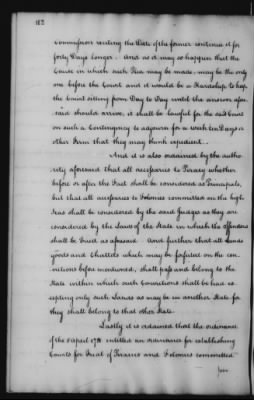 182
Commission reciting the Date of the former continue it for
forty Days longer. And as it may so happen that the
Cause in which such Plea may be made, may be the only
one before the Court and it would be a Hardship to keep
the Court sitting from Day to Day until the answer afore
said should arrive, it shall be lawful for the said Court
on such a Contingency to adjourn for a week ten Days or
other Term that they may think expedient.
And it is also ordained by the autho
rity aforesaid that all accessories to Piracy whether
before or after the Fact shall be considered as Principals,
but that all accessories to Felonies committed on the high
Seas shall be considered by the said Judges as they are
considered by the Laws of the State in which the offenders
shall be tried as aforesaid. And further that all Lands
goods and Chattels which may be forfeited on the con
victions before mentioned, shall pass and belong to the
State within which such Convictions shall be had ex
cepting only such Lands as may be in another State for
they shall belong to that other State.
Lastly it is ordained that the ordinance
of the 5 april 1781 intitled an ordinance for establishing
Courts for Trial of Piracies and Felonies committed